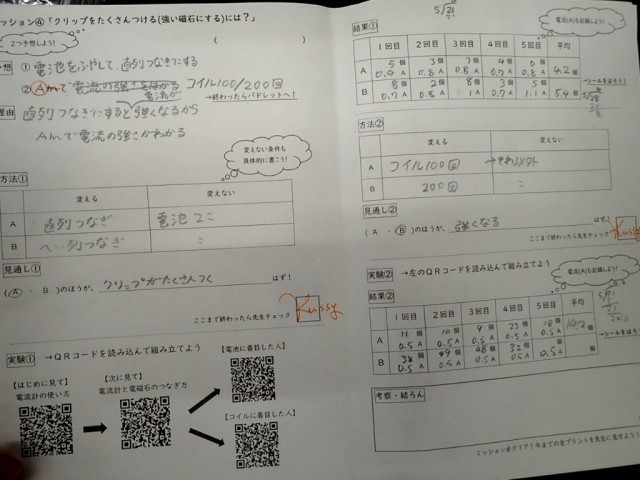 ミッションⒶ「クリップをたくさんつける(強い磁石にする)には?」
2つ予想しよう!
予想 ① 電池をふやして、直列つなぎにする
② コイル100/200回
→終わったらパドレットへ!
理由 直列つなぎにすると強くなるから
Amで電流の強さがわかる
変えない条件も
具体的に書こう!
方法①
変える 変えない
A 直列つなぎ 電池2こ
B へい列つなぎ 〃
見通し①
(Ⓐ ・ B )のほうが、 クリップがたくさんつく はず!
ここまで終わったら先生チェック
実験① →QRコードを読み込んで組み立てよう
【はじめに見て】
電流計の使い方
【次に見て】
電流計と電磁石のつなぎ方
【電池に着目した人】
【コイルに着目した人】
5/21
結果①
電流(A)も記録しよう!
1回目 2回目 3回目 4回目 5回目 平均
A 5個 3個 3個 4個 6個 4.2個
0.9A 0.8A 0.8A 0.8A 0.8A
B 8個 2個 8個 3個 5個 5.4個
0.7A 0.8A 1A 0.7A 1.1A
→シールをはろう!
方法②
変える 変えない
A コイル100回 それ以外
B 200回 〃
見通し②
(A ・ Ⓑ)のほうが、 強くなる はず!
ここまで終わったら先生チェック
実験② →左のQRコードを読み込んで組み立てよう
結果②
電流(A)も記録しよう!
1回目 2回目 3回目 4回目 5回目 平均
A 11個 10個 9個 23個 18個
0.5A 0.5A 0.5A 0.5A 0.5A
B 38個 49個 48個 32個 個
0.5A 0.5A 0.5A 0.5A 0.5A
→シールをはろう!
考察・結ろん
ミッション全クリア!今までの全プリントを先生に見せよう!